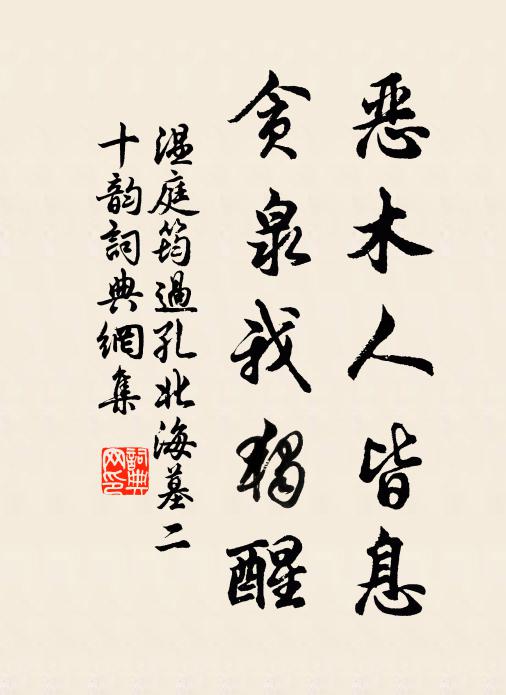 恶木人皆息
贪泉我独醒
温庭筠過孔北海墓二
十韵詞典網集
詞典
网印